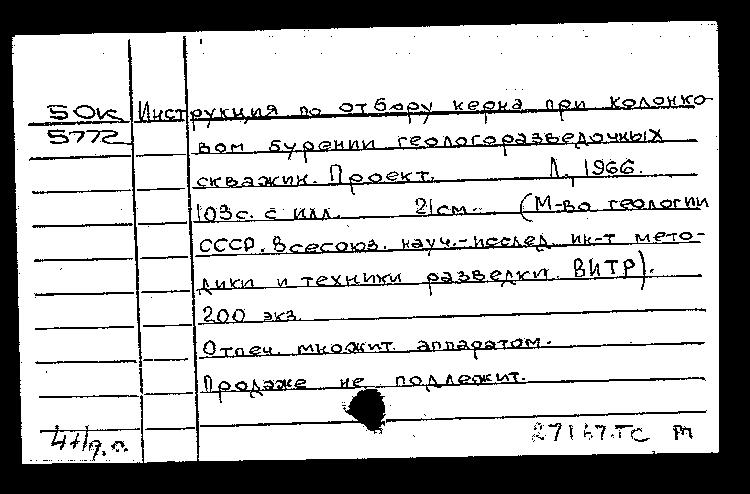 50к Инструкция по отбору керна при колонко-
5772 вом бурении геологоразведочных
скважин. Проект. Л., 1966.
103с. с илл. 21см. (М-во геологии
СССР. Всесоюз. науч.-исслед. ин-т мето-
дики и техники разведки ВИТР).
200 экз.
Отпеч. множит. аппаратом.
Продаже не подлежит.